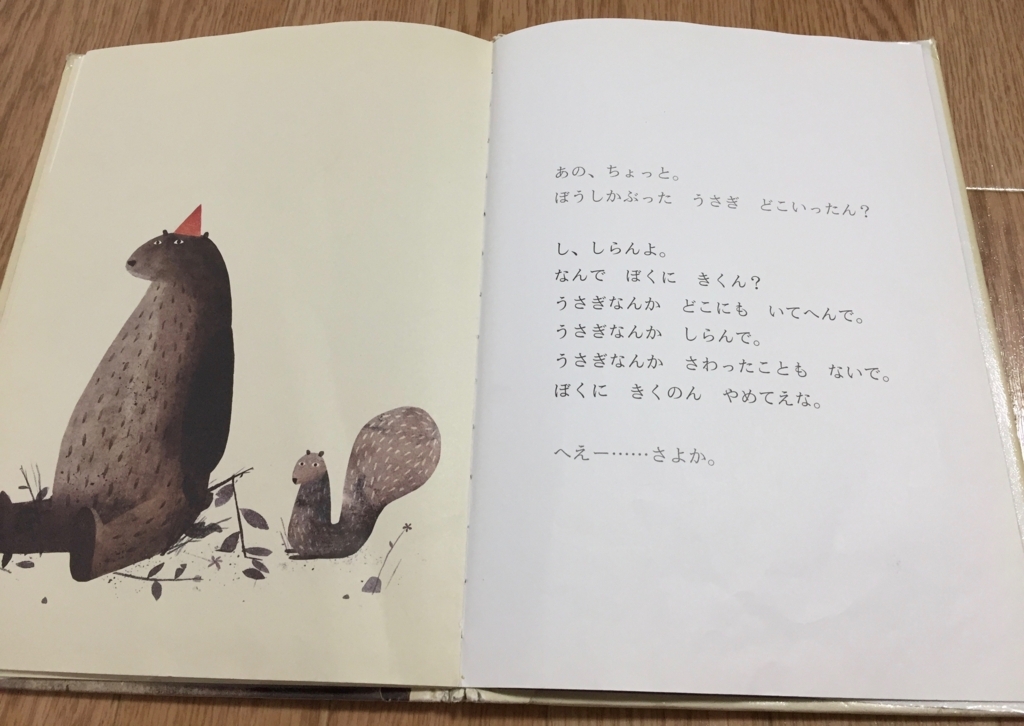 あの、ちょっと。
ぼうしかぶった　うさぎ　どこいったん？
し、しらんよ。
なんで　ぼくに　きくん？
うさぎなんか　どこにも　いてへんで。
うさぎなんか　しらんで。
うさぎなんか　さわったことも　ないで。
ぼくに　きくのん　やめてえな。
へえー……さよか。